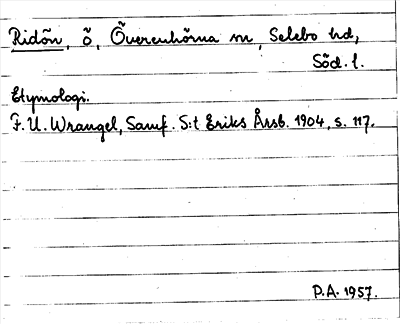 Ridön, ö, Överenhörna sn, Selebo hd,
Söd. l.
Etymologi.
F. U. Wrangel, Samf. S:t Eriks Årsb. 1904, s. 117.
P.A. 1957.